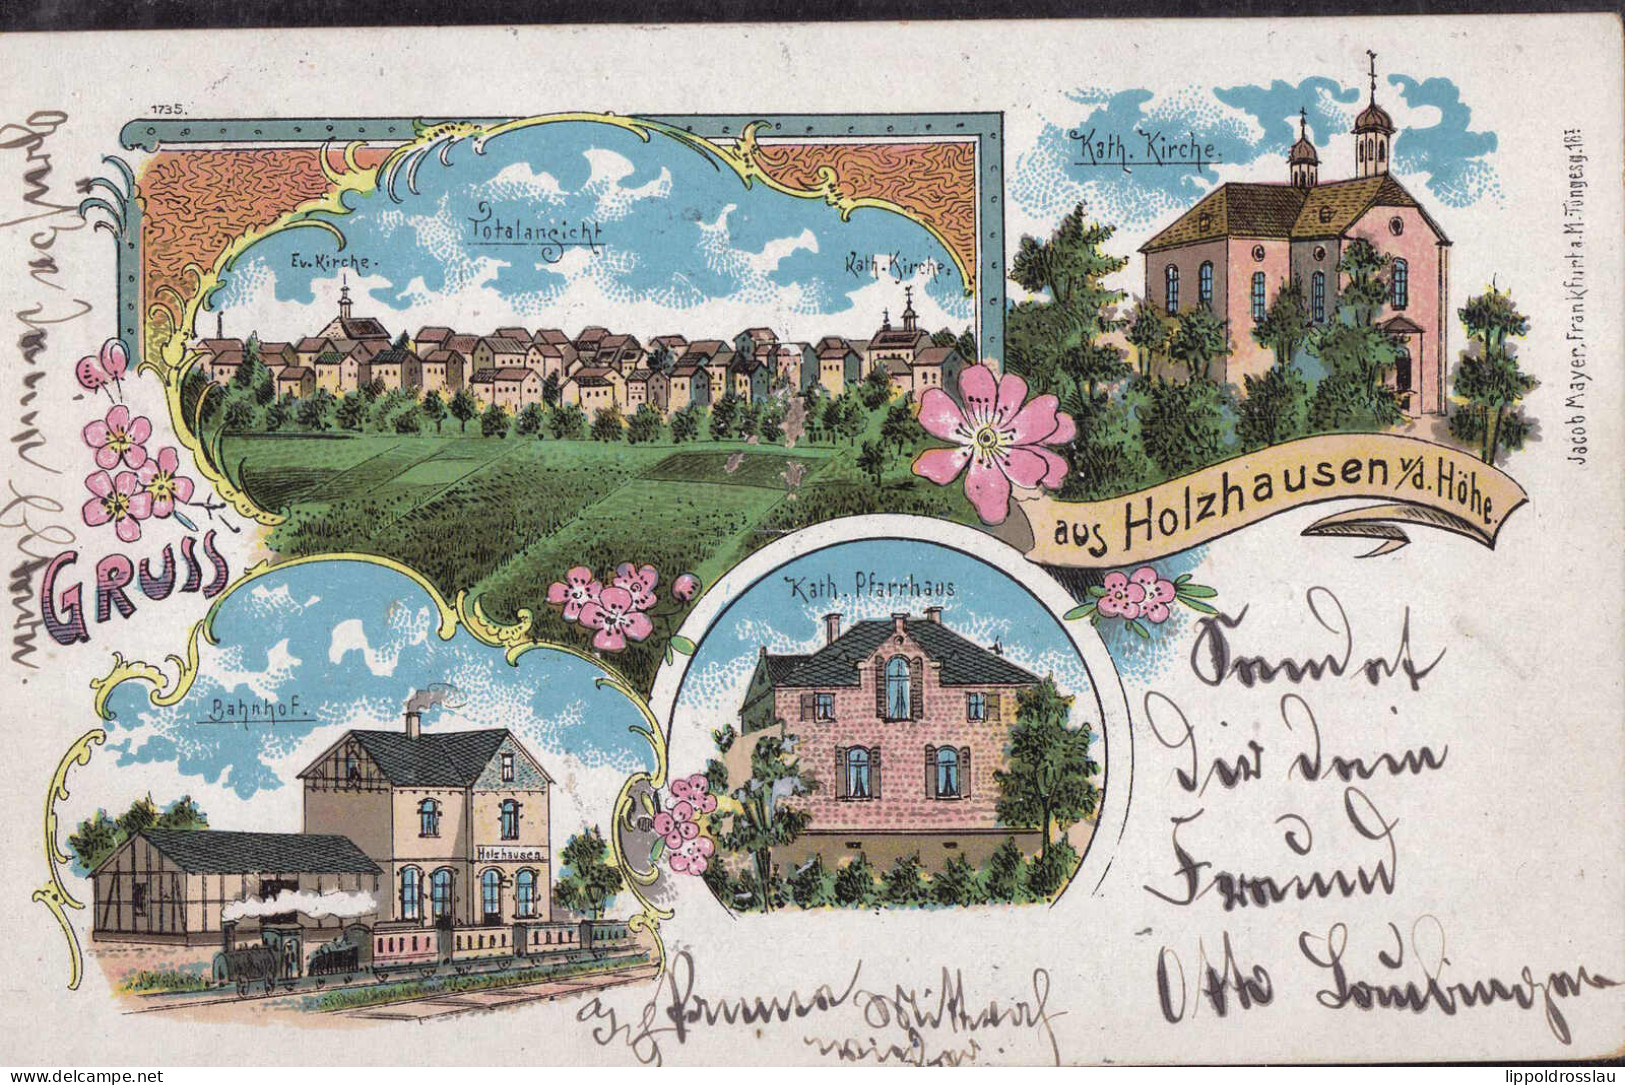 1735.
Totalansicht
Ev. Kirche.
Kath. Kirche.
Kath. Kirche.
Jacob Mayer, Frankfurt a. M. Töngesg. 18
GRUSS
aus Holzhausen v/d. Höhe.
Kath. Pfarrhaus
Bahnhof.
Holzhausen.
Sendet
dir dein
Freund
Otto
Ich komme Mittwoch
wieder.
delcampe.net
lippoldrosslau